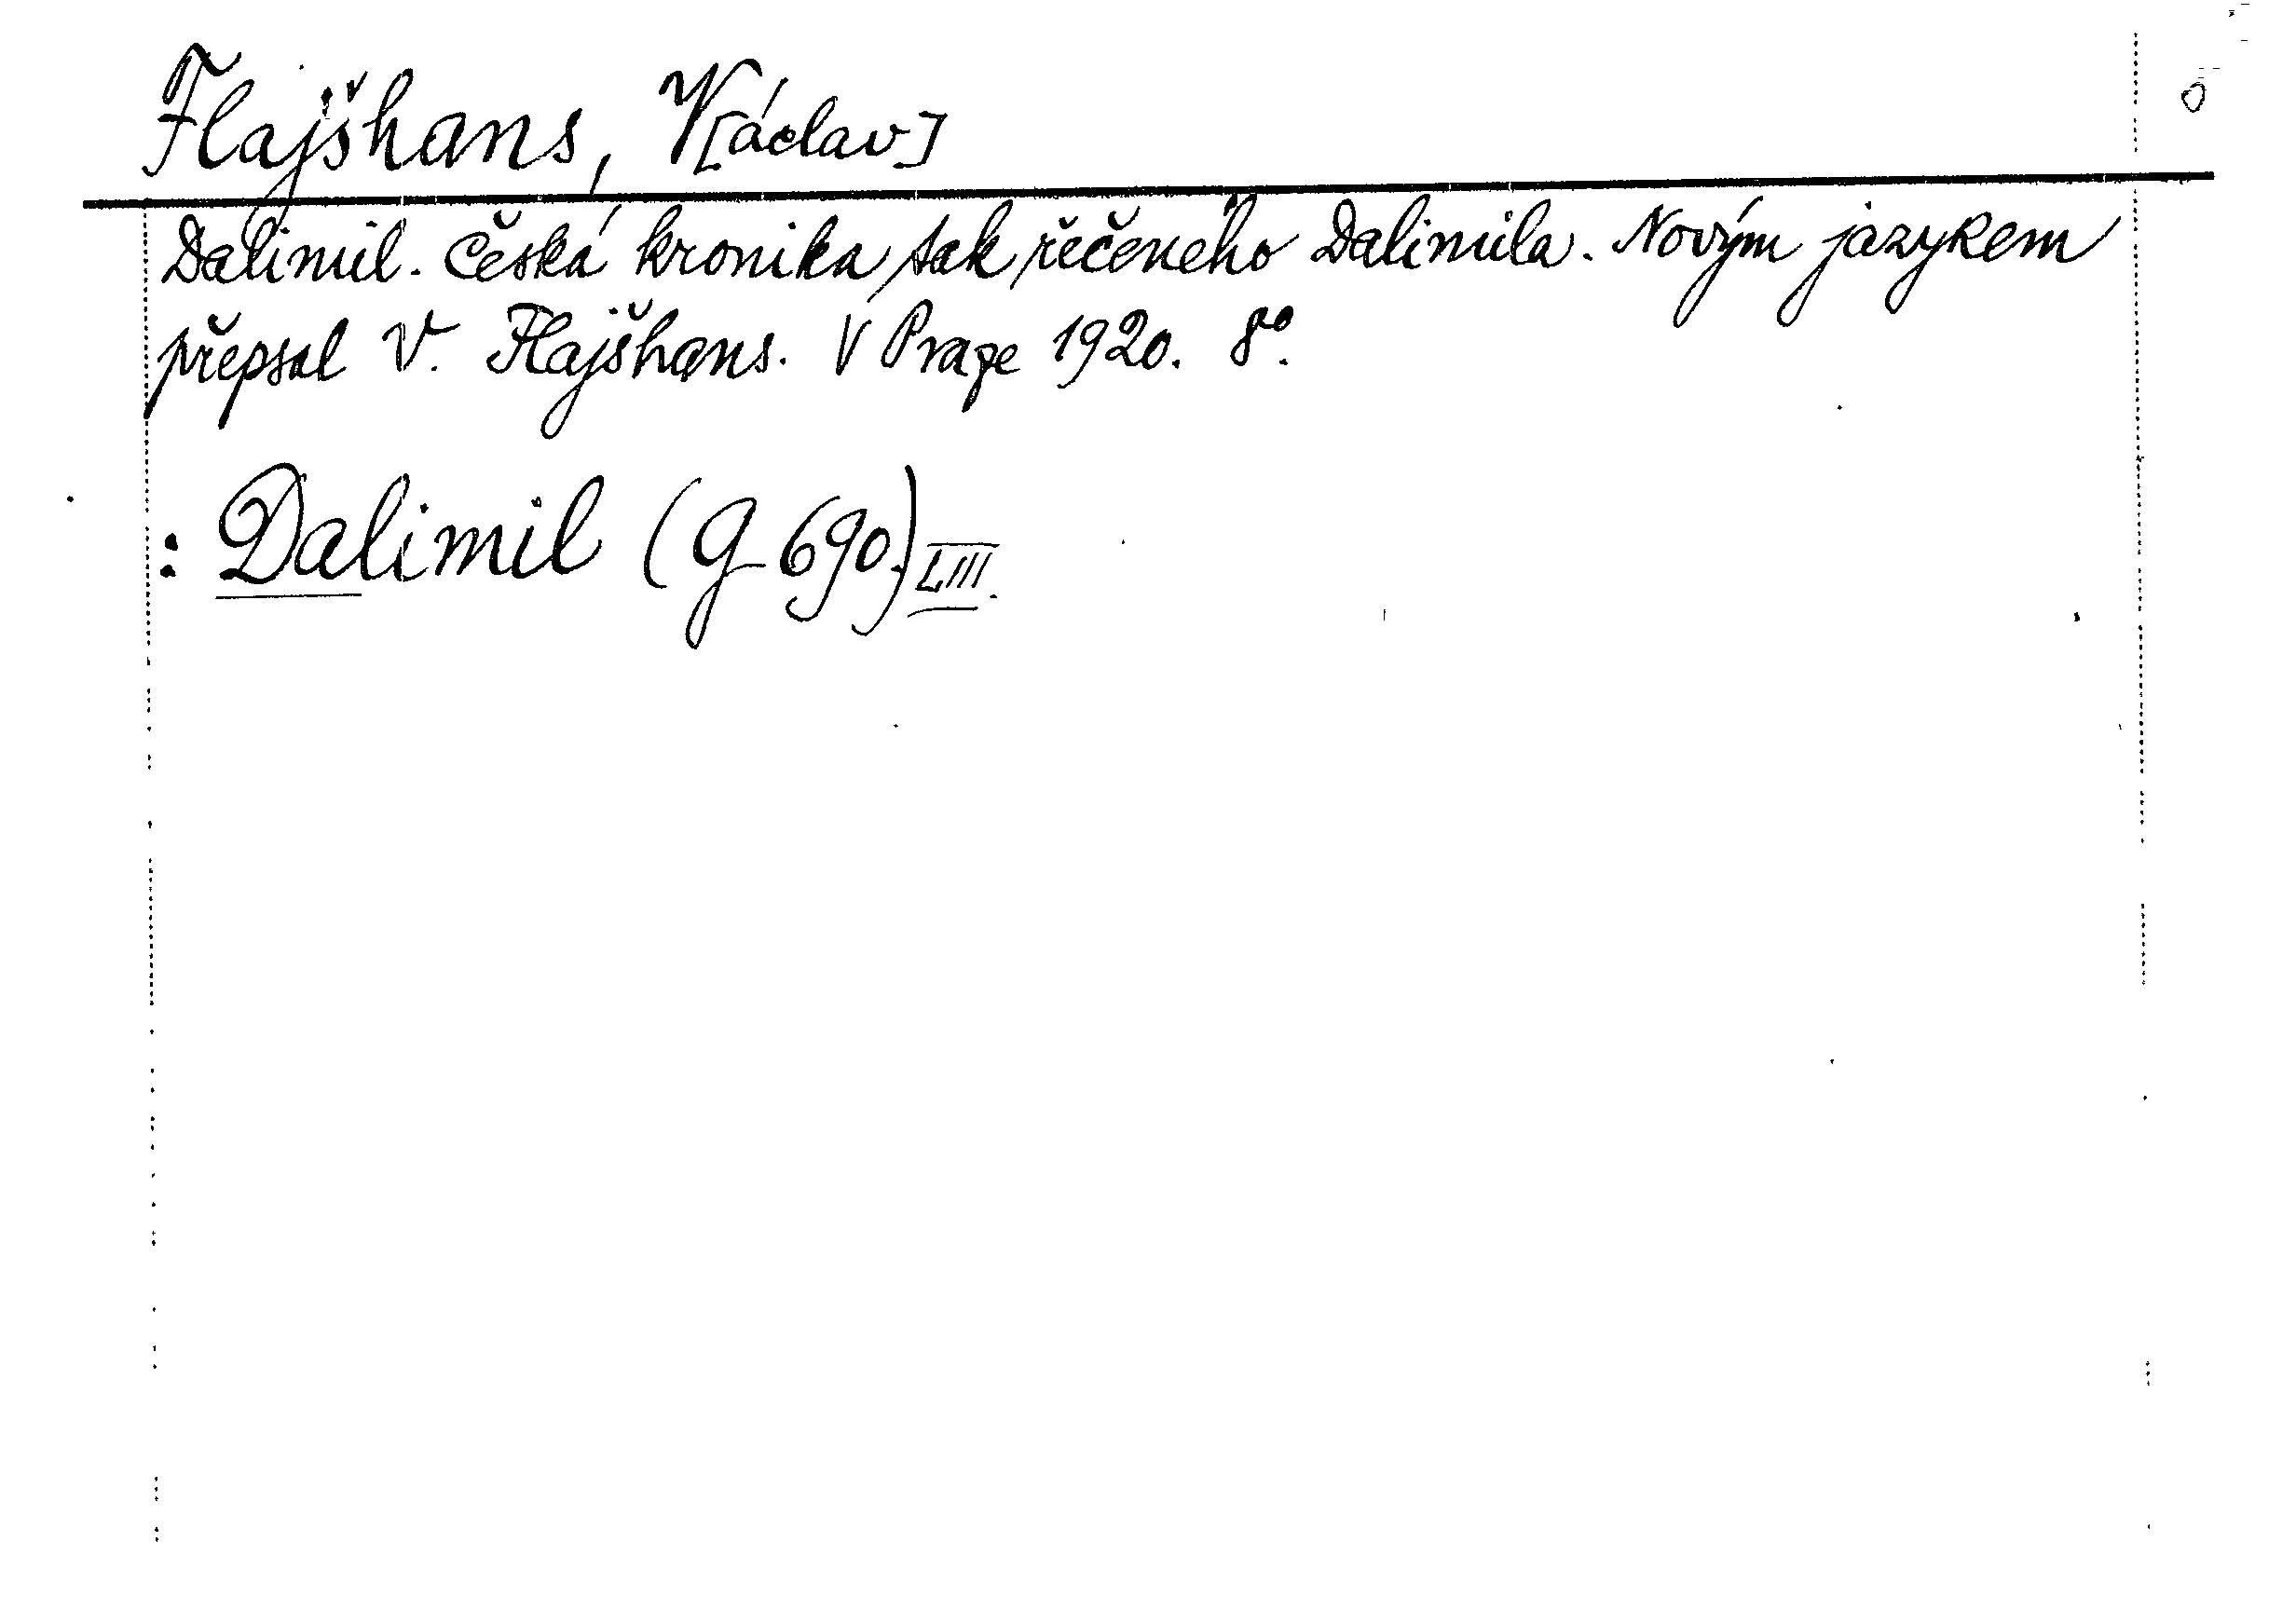 Flajšhans, V[áclav]
Dalimil. Česká kronika tak řečeného Dalimila. Novým jazykem
přepsal V. Flajšhans. V Praze 1920. 8°.
: Dalimil (G 690) LIII.